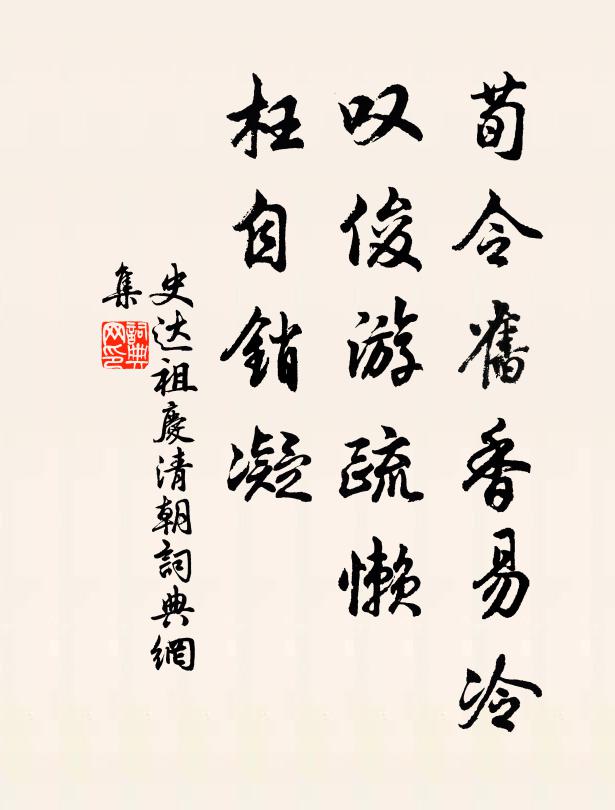 荀令舊香易冷
叹俊游疏懒
枉自銷凝
史达祖慶清朝詞典網
集
詞典
网印